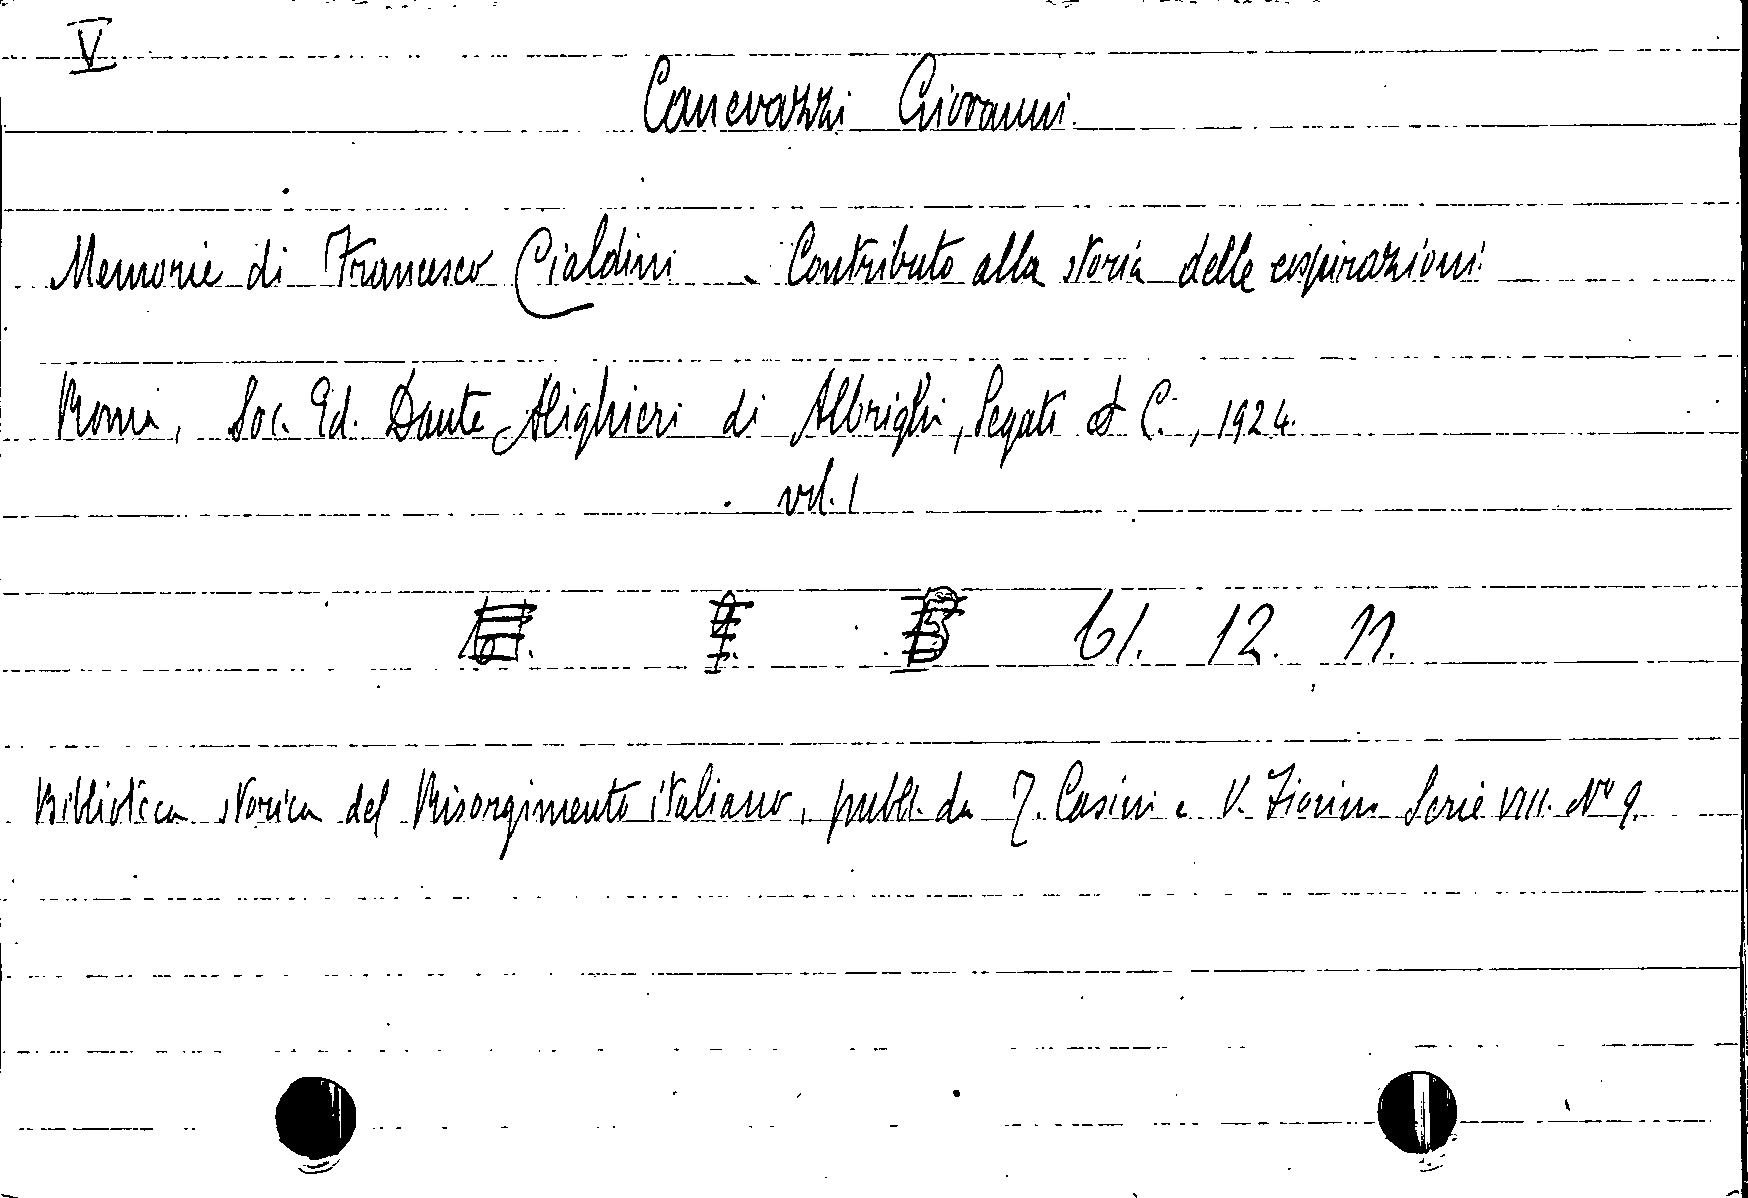 V
Canevazzi Giovanni.
Memorie di Francesco Cialdini. Contributo alla storia delle cospirazioni.
Roma, Soc. Ed. Dante Alighieri di Albrighi, Segati & C., 1924.
vol. 1
61. 12. 11.
Biblioteca storica del Risorgimento italiano, pubbl. da T. Casini e V. Fiorini Serie VIII. Nº 9.